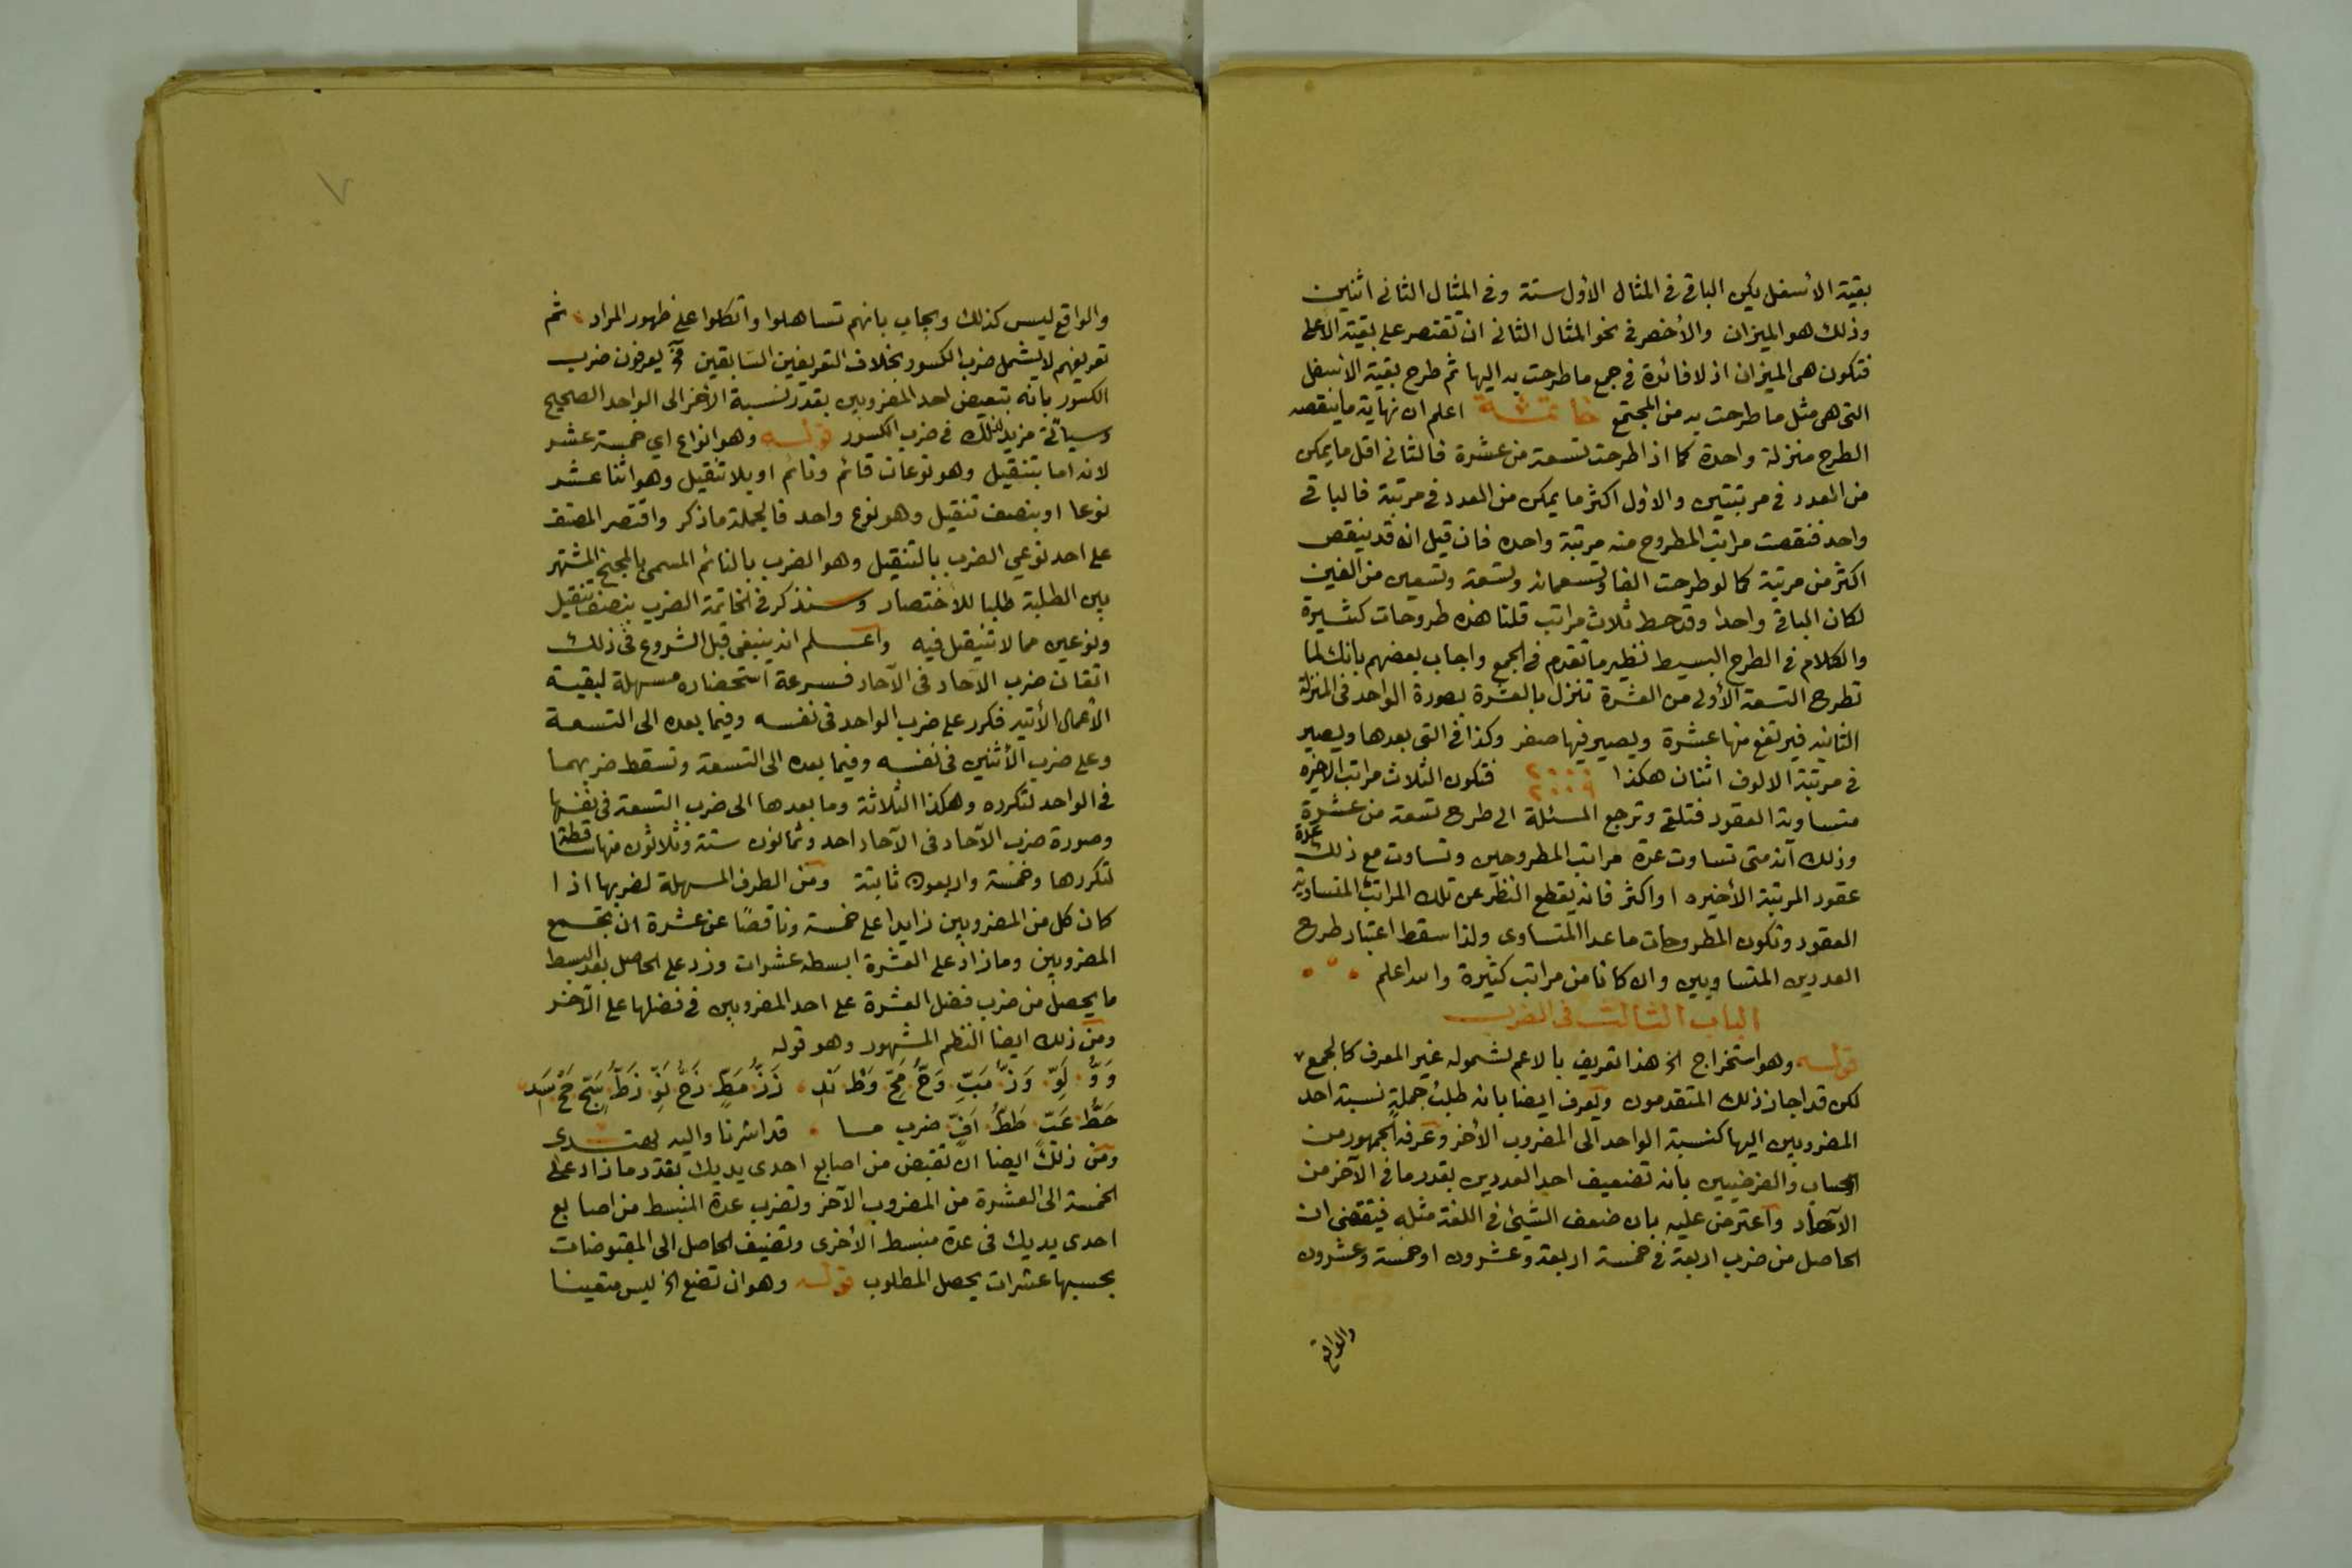 بقية الأسفل يكن الباقي في المثال الأول ستة وفي المثال الثاني اثنين
وذلك هو الميزان والأخصر في نحو المثال الثاني ان تقتصر على بقية الأعلى
فتكون هي الميزان اذ لا فائدة في جمع ما طرحت به اليها ثم طرح بقية الأسفل
التي هي مثل ما طرحت به من المجتمع خاتمة اعلم ان نهاية ما ينقصه
الطرح منزلة واحدة كما اذا طرحت تسعة من عشرة فالثاني اقل ما يمكن
من العدد في مرتبتين والأول اكثر ما يمكن من العدد في مرتبة فالباقي
واحد فنقصت مراتب المطروح منه مرتبة واحدة فان قيل انه قد ينقص
اكثر من مرتبة كما لو طرحت الفا وتسعمائة وتسعة وتسعين من الفين
لكان الباقي واحدا وقد حط ثلاث مراتب قلنا هذه طروحات كثيرة
والكلام في الطرح البسيط نظير ما تقدم في الجمع واجاب بعضهم بانك لما
تطرح التسعة الأولى من العشرة تنزل بالعشرة بصورة الواحد في المنزلة
الثانية فيرتفع منها عشرة ويصير فيها صفر وكذا في التي بعدها ويصير
في مرتبة الالوف اثنان هكذا ٢٠٠٠ ٢٠٠٩ فتكون الثلاث مراتب الاخيرة
متساوية العقود فتلقى وترجع المسئلة الى طرح تسعة من عشرة
وذلك انه متى تساوت عدة مراتب المطروحين وتساوت مع ذلك عدة
عقود المرتبة الأخيرة او اكثر فانه يقطع النظر عن تلك المراتب المتساوية
العقود وتكون المطروحات ما عدا المتساوى ولذا سقط اعتبار طرح
العددين المتساويين وان كانا من مراتب كثيرة والله اعلم
الباب الثالث في الضرب
قوله وهو استخراج الخ هذا تعريف بالاعم لشموله غير المعرف كالجمع
لكن قد اجاز ذلك المتقدمون ويعرف ايضا بانه طلب جملة نسبة احد
المضروبين اليها كنسبة الواحد الى المضروب الأخر وعرفه الجمهور من
الحساب والفرضيين بانه تضعيف احد العددين بقدر ما في الآخر من
الآحاد واعترض عليه بان ضعف الشيئ في اللغة مثله فيقتضى ان
الحاصل من ضرب اربعة في خمسة اربعة وعشرون او خمسة وعشرون
والواقع
٧
والواقع ليس كذلك ويجاب بانهم تساهلوا واتكلوا على ظهور المراد ثم
تعريفهم لا يشمل ضرب الكسور بخلاف التعريفين السابقين يعرفون ضرب
الكسور بانه تبعيض احد المضروبين بقدر نسبة الأخر الى الواحد الصحيح
وسيأتي مزيد لذلك في ضرب الكسور قوله وهو انواع اي خمسة عشر
لانه اما بتنقيل وهو نوعان قائم ونائم او بلا تنقيل وهو اثنا عشر
نوعا او بنصف تنقيل وهو نوع واحد فالجملة ما ذكر واقتصر المصنف
على احد نوعي الضرب بالتنقيل وهو الضرب بالنائم المسمى بالمجنح المشتهر
بين الطلبة طلبا للأختصار وسنذكر في الخاتمة الضرب بنصف تنقيل
ونوعين مما لا تنقيل فيه واعلم انه ينبغي قبل الشروع في ذلك
اتقان ضرب الآحاد في الآحاد فسرعة استحضاره مسهلة لبقية
الأعمال الأتية فكرر على ضرب الواحد في نفسه وفيما بعده الى التسعة
وعلى ضرب الأثنين في نفسه وفيما بعده الى التسعة وتسقط ضربهما
في الواحد لتكرره وهكذا الثلاثة وما بعدها الى ضرب التسعة في نفسها
وصورة ضرب الآحاد في الآحاد احد وثمانون ستة وثلاثون منها ساقطة
لتكررها وخمسة واربعون ثابتة ومن الطرف المسهلة لضربها اذا
كان كل من المضروبين زايدا على خمسة وناقصًا عن عشرة ان تجمع
المضروبين وما زاد على العشرة ابسطه عشرات وزد على الحاصل بعد البسط
ما يحصل من ضرب فضل العشرة على احد المضروبين في فضلها على الآخر
ومن ذلك ايضا النظم المشهور وهو قوله
وَوُ لَوّ وَزُ مَبّ وَحُ مَحّ وَط نَد زَزُ مَطّ زَحُ نَوّ زَطُ سَجّ حَحْ سَد
حَطُ عَبّ طَطُ اَفّ ضرب مسا قد اشرنا واليه يهتدى
ومن ذلك ايضا ان تقبض من اصابع احدى يديك بقدر ما زاد على
الخمسة الى العشرة من المضروب الآخر وتضرب عدة المنبسط من اصابع
احدى يديك في عدة منبسط الأخرى وتضيف الحاصل الى المقبوضات
بحسبها عشرات يحصل المطلوب قوله وهو ان تضع الخ ليس متعينا